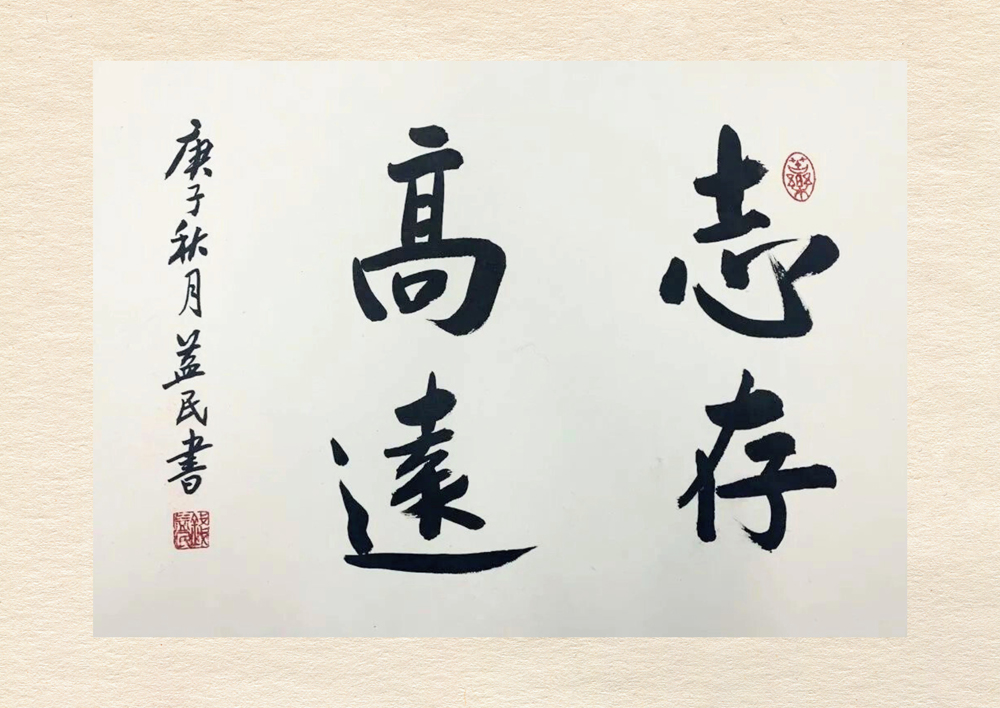 志存
高遠
庚子秋月益民書